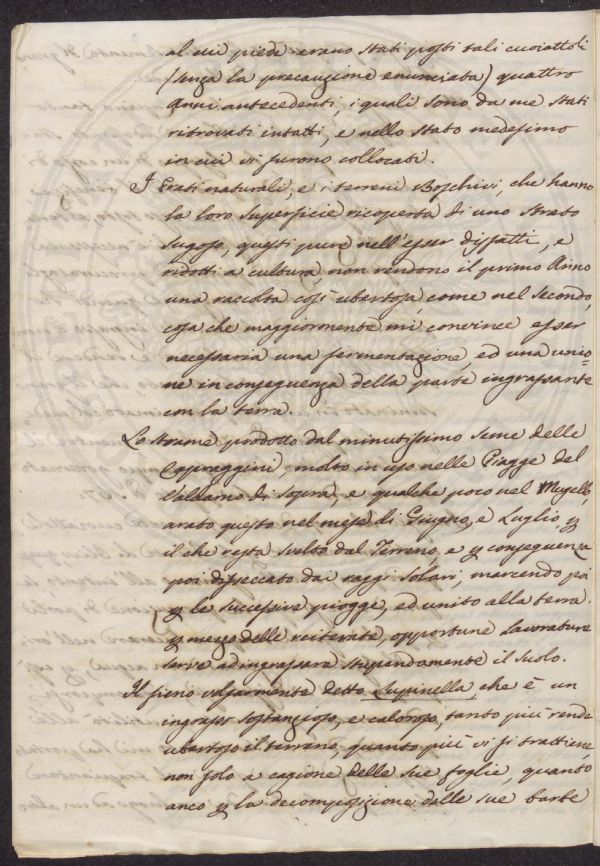 al cui piede erano stati posti tali cuoiattoli
(senza la precauzione enunciata) quattro
Anni antecedenti, i quali sono da me stati
ritrovati intatti, e nello stato medesimo
in cui vi furono collocati.
I Prati naturali, e i terreni Boschivi, che hanno
la loro superficie ricoperta di uno strato
sugoso, questi pure nell'esser disfatti, e
ridotti a cultura, non rendono il primo Anno
una raccolta così ubertosa, come nel secondo,
cosa che maggiormente mi convince esser
necessaria una fermentazione, ed una unio=
ne in conseguenza della parte ingrassante
con la terra.
Lo strame prodotto dal minutissimo seme delle
Capraggini, molto in uso nelle Piagge del
Valdarno di sopra, e qualche poco nel Mugello,
arato questo nel mese di Giugno, e Luglio, p
il che resta svelto dal Terreno, e p conseguenza
poi disseccato dai raggi solari, marcendo poi
p le successive piogge, ed unito alla terra
p mezzo delle reiterate, opportune lavorature
serve ad ingrassare stupendamente il suolo.
Il fieno volgarmente detto Lupinella, che è un
ingrasso sostanzioso, e caloroso, tanto più rende
ubertoso il terreno, quanto più vi si trattiene,
non solo a cagione delle sue foglie, quanto
anco p la decomposizione dalle sue barbe